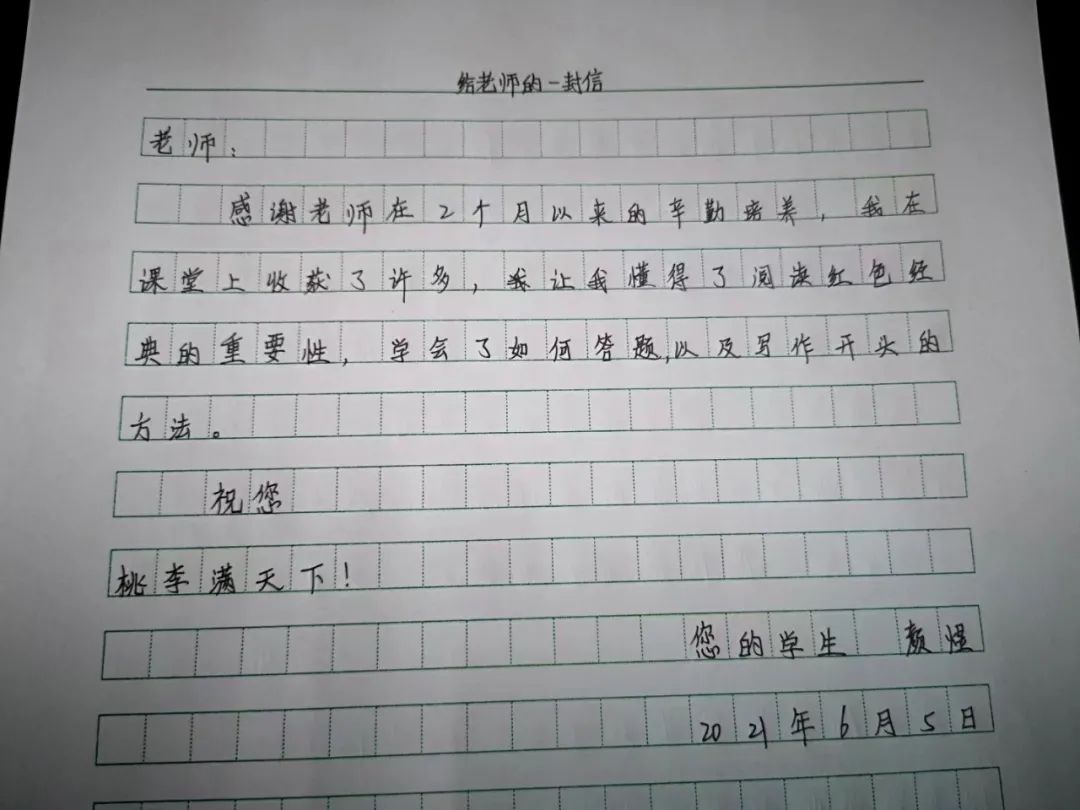 给老师的一封信
老师：
感谢老师在2个月以来的辛勤培养，我在
课堂上收获了许多，让我懂得了阅读红色经
典的重要性，学会了如何答题，以及写作开头的
方法。
祝您
桃李满天下！
您的学生 颜
2021年6月5日